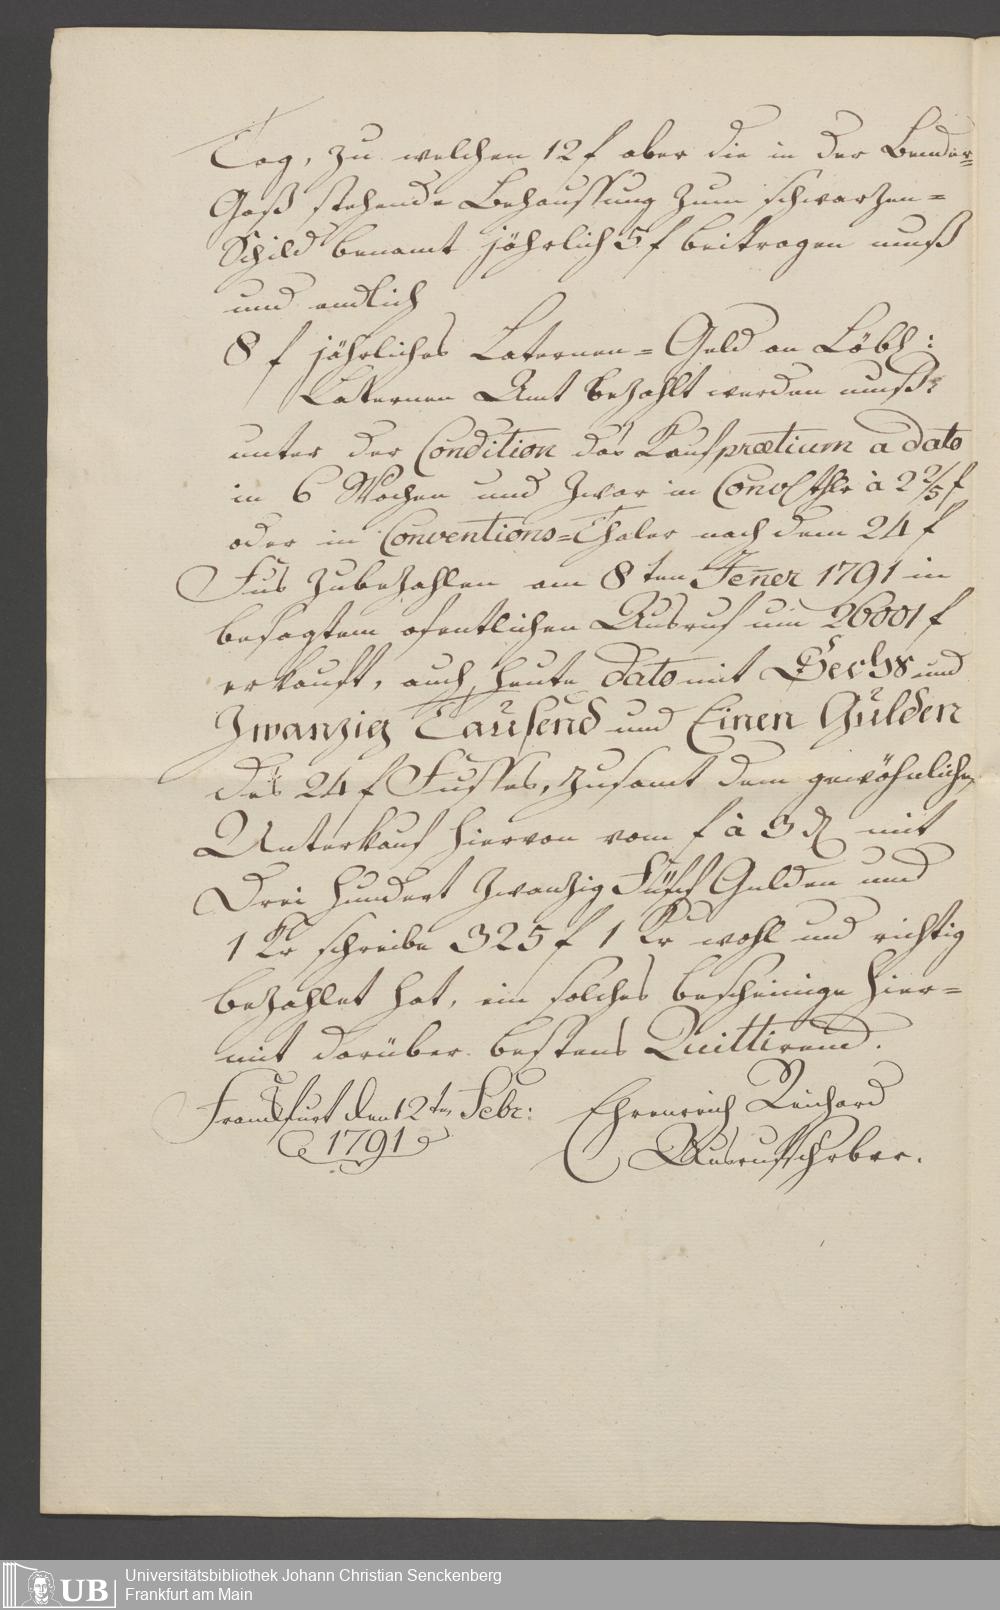 Tag, zu welchen 12 f aber die in der Bender=
Gaß stehende Behaussung zum schwarzen=
Schild benamt jährlich 5 f beitragen muß
und endlich
8 f jährliches Laternen=Geld an Löbl:
Laternen Amt bezahlt werden muß
unter der Condition das Kaufprætium a dato
in 6 Wochen und zwar in Convthlr à 2 2/5 f
oder in Conventions=Thaler nach dem 24 f
Fus zubezahlen am 8ten Jen̄er 1791 in
besagtem ofentlichen Ausruf um 26001 f
erkauft, auch heute dato mit Sechs und
Zwanzig Tausend und Einen Gulden
des 24 f Fusses, zusamt dem gewöhnlichen
Unterkauf hiervon vom f à 3 ₰ mit
Drei hundert zwanzig Fünf Gulden und
1 Kr schreibe 325 f 1 Kr wohl und richtig
bezahlet hat, ein solches bescheinige hier=
mit darüber bestens Quittirend.
Franckfurt den 12ten Febr: Ehrenreich Reichard
1791 Ausrufschrbr.
UB
Universitätsbibliothek Johann Christian Senckenberg
Frankfurt am Main